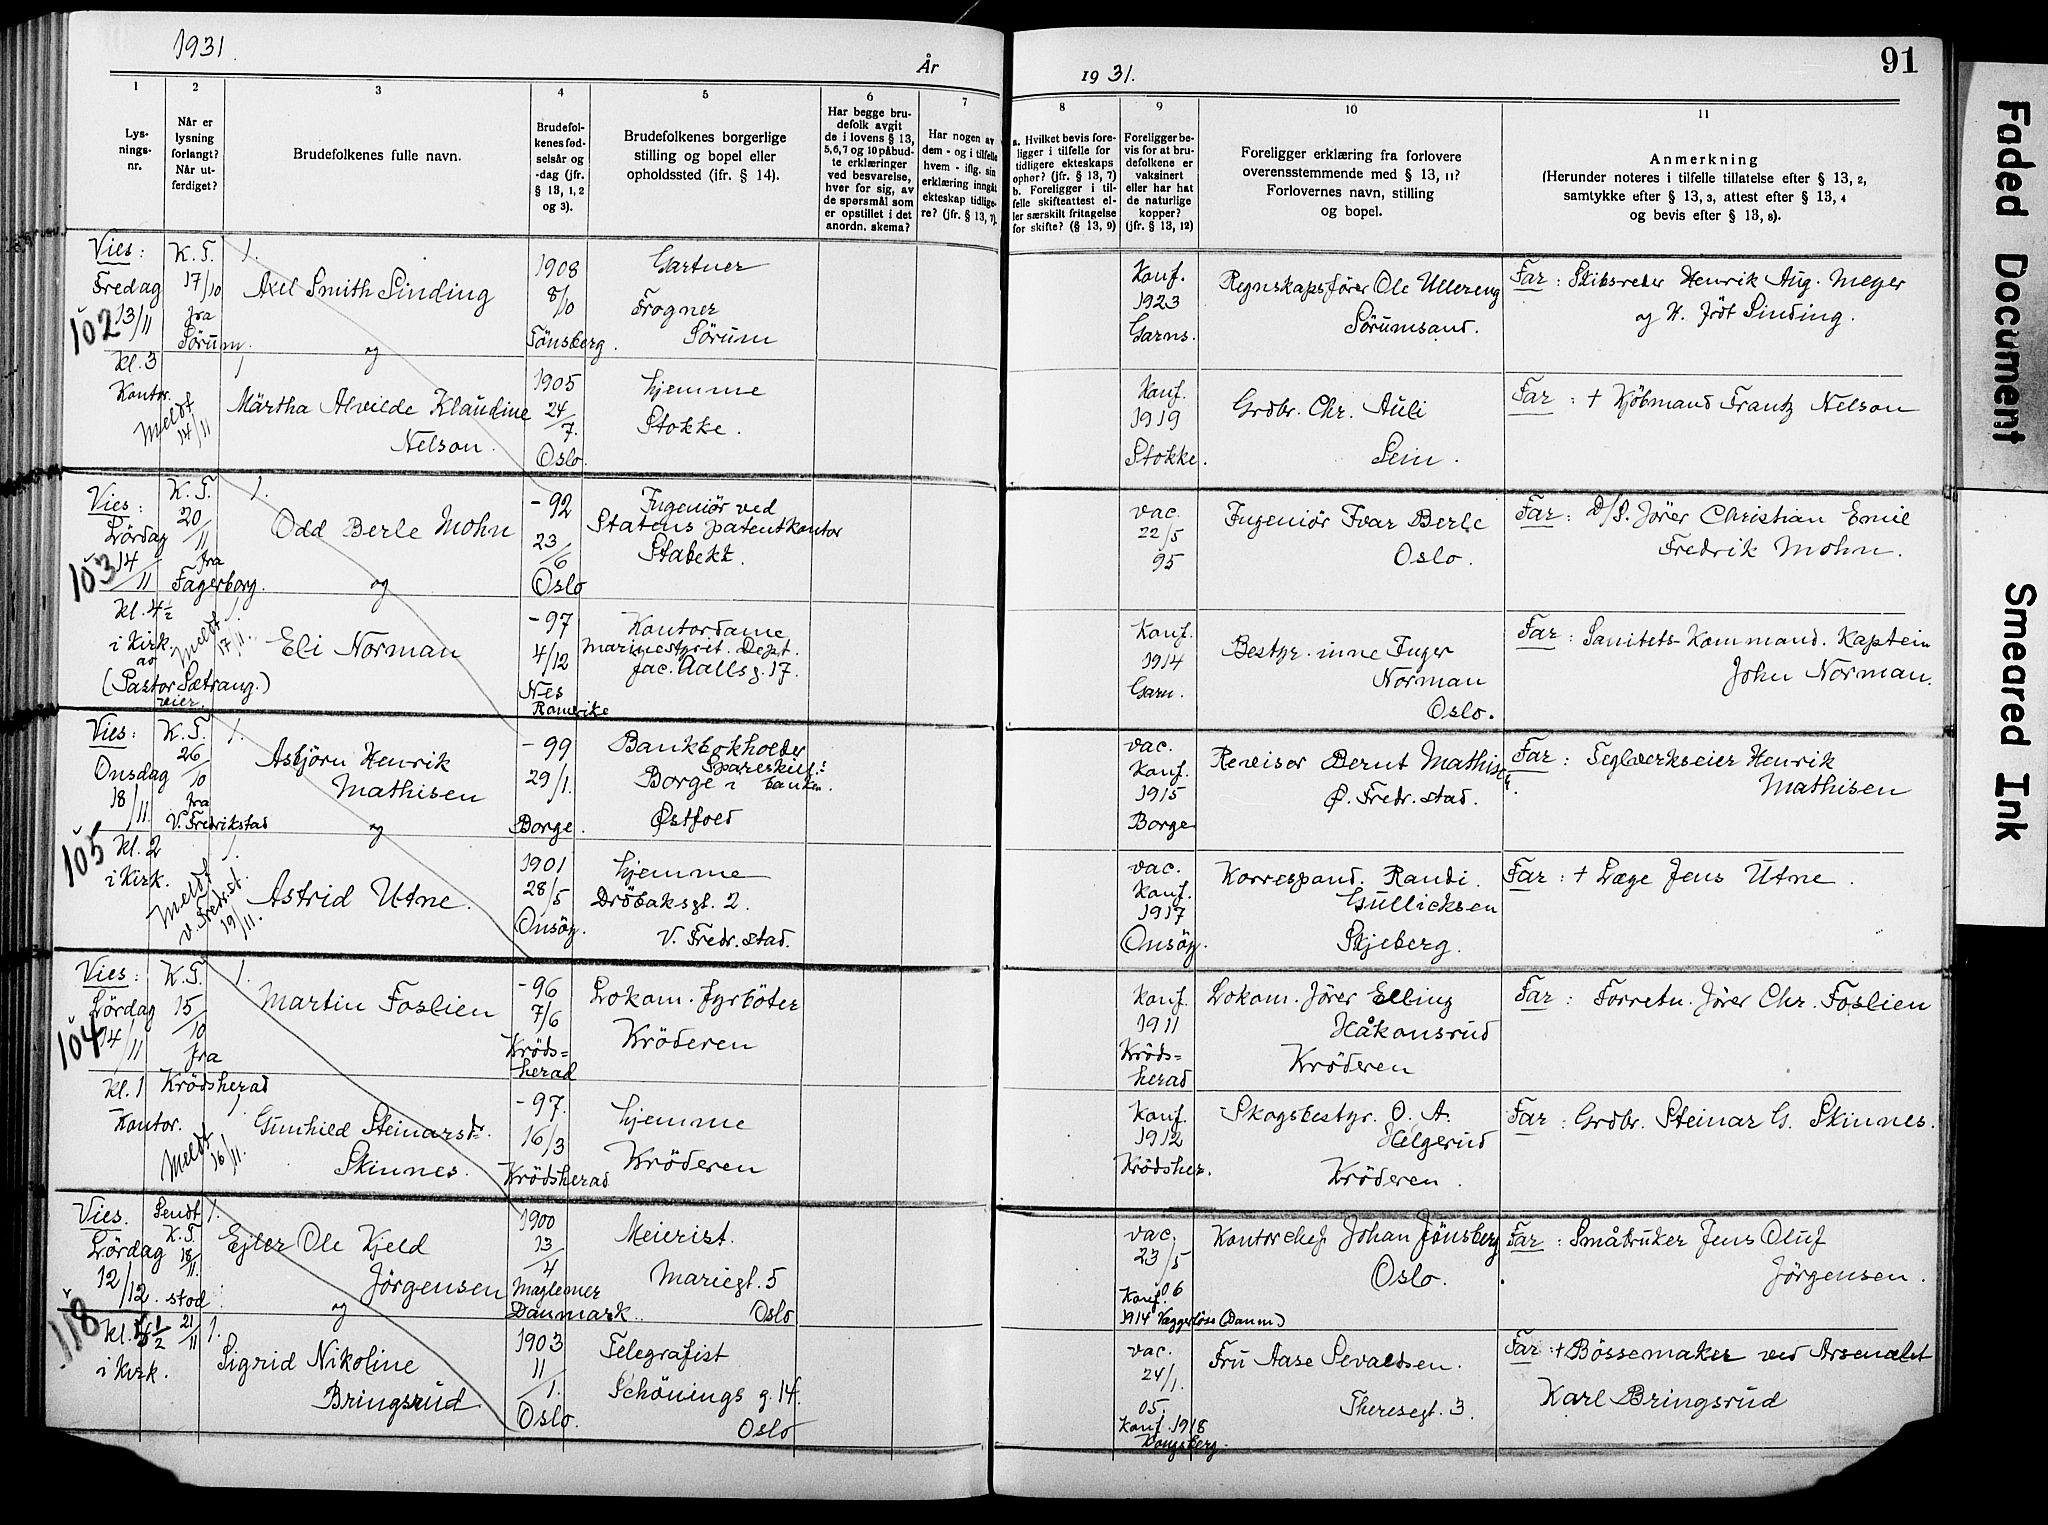 1931.
År
1931.
91
1
Lys-
nings-
nr.
2
Når er
lysning
forlangt?
Når ut-
ferdiget?
3
Brudefolkenes fulle navn.
4
Brudefol-
kenes fød-
selsår og
-dag (jfr.
§ 13, 1, 2
og 3).
5
Brudefolkenes borgerlige
stilling og bopel eller
opholdssted (ifr. § 14).
6
Har begge bru-
defolk avgit
de i lovens § 13,
5,6,7 og 10 påbud-
te erklæringer
ved besvarelse,
hver for sig, av
de spørsmål som
er opstillet i det
anordn. skema?
7
Har nogen av
dem - og i tilfelle
hvem - iflg. sin
erklæring inngåt
ekteskap tidlige-
re? (jfr. § 13, 7).
8
a. Hvilket bevis fore-
ligger i tilfelle for
tidligere ekteskaps
ophør? (jfr. § 13, 7)
b. Foreligger i til-
felle skifteattest el-
ler særskilt fritagelse
for skifte? (§ 13, 9)
9
Foreligger be-
vis for at bru-
defolkene er
vaksinert
eller har hat
de naturlige
kopper?
(jfr. § 13, 12)
10
Foreligger erklæring fra forlovere
overensstemmende med § 13, 11?
Forlovernes navn, stilling
og bopel.
11
Anmerkning
(Herunder noteres i tilfelle tillatelse efter § 13, 2,
samtykke efter § 13, 3, attest efter § 13, 4
og bevis efter § 13, 8).
Vies:
Fredag
13/11
102
kl. 3
Kontor.
K.T.
17/10
fra
Sørum.
Meldt
14/11
1.
Axel Smith Sinding
og
1
Märtha Alvilde Klaudine
Nelson.
1908
8/10
Tönsberg.
1905
24/7.
Oslo.
Gartner
Frogner
Sørum
hjemme
Stokke.
Konf.
1923
Garns.
Konf.
1919
Stokke.
Regnskapsfører Ole Ullereng
Sørumsand.
Grdbr. Chr. Auli
Sem.
Far: Skibsreder Henrik Aug. Meyer
og H. Sinding.
Far: + Kjøbmand Frantz Nelson
Vies:
Lördag
14/11
103
kl. 4½
i Kirk.
av
(Pastor Sætrang.)
vier.
K.T.
20/11
fra
Fagerborg.
Meldt
17/11.
1.
Odd Berle Mohn
og
1.
Eli Norman
-92
23/6
Oslo
-97
4/12
Nes
Romerike
Ingeniør ved
Statens patentkontor
Stabekk.
Kontordame
Marinestyret. Dept.
Jac. Aallsg. 17.
vac.
22/5
95
Konf.
1914
Garn.
Ingeniør Ivar Berle
Oslo.
Bestyr.inne Inger
Norman
Oslo.
Far: D/S. fører Christian Emil
Fredrik Mohn.
Far: Sanitets Kommand. Kaptein
John Norman.
Vies:
Onsdag
18/11.
105
kl. 2
i Kirk.
K.T.
26/10
fra
V. Fredrikstad
Meldt
V. Fredr.st.
19/11.
1.
Asbjörn Henrik
Mathisen
og
1.
Astrid Utne.
-99
29/1.
Borge.
1901
28/5
Onsöy.
Bankbokholder
Spareskill:
Borge i banken.
Østfold
hjemme
Dröbaksgt. 2.
V. Fredr.stad.
vac.
Konf.
1915
Borge
vac.
Konf.
1917
Onsöy.
Revisor Bernt Mathisen
Ø. Fredr.stad.
Korrespond. Randi
Gullicksen
Skjeberg.
Far: Teglverkseier Henrik
Mathisen
Far: + Læge Jens Utne.
Vies:
Lördag
14/11
104
kl. 1
Kontor.
K.T.
15/10
fra
Krödsherad
Meldt
16/11.
1.
Martin Foslien
1
Gunhild Steinarsd.
Skinnes.
-96
7/6
Kröds=
herad
-97.
16/3
Krödsherad
Lokom. fyrböter
Kröderen
hjemme
Kröderen
Konf.
1911
Kröds=
herad
Konf.
1912
Krödsher.
Lokom. förer Elling
Håkonsrud
Kröderen
Skogsbestyr. O. A.
Helgerud
Kröderen.
Far: Forretn. förer Chr. Foslien
Far: Grdbr. Steinar G. Skinnes.
Vies.
Lördag
12/12.
118
kl. 5½
i Kirk.
Sendt
K.T.
18/11.
stod
21/11
1.
Ejler Ole Kjeld
Jörgensen
og
1.
Sigrid Nikoline
Bringsrud
1900
13/4
Maglemer
Danmark.
1903
11/1.
Oslo.
Meierist.
Mariegt. 5
Oslo
Telegrafist
Schönings g. 14.
Oslo
vac.
23/5
06
Konf.
1914 Væggerløse (Danm.)
vac.
24/1.
05.
Konf. 1918
Kongsberg.
Kontorchef Johan Jönsberg
Oslo.
Fru Aase Sevaldsen.
Theresegt. 3.
Far: Småbruker Jens Oluf
Jörgensen.
Far: + Bössemaker ved Arsenalet
Karl Bringsrud
Faded Document
Smeared Ink